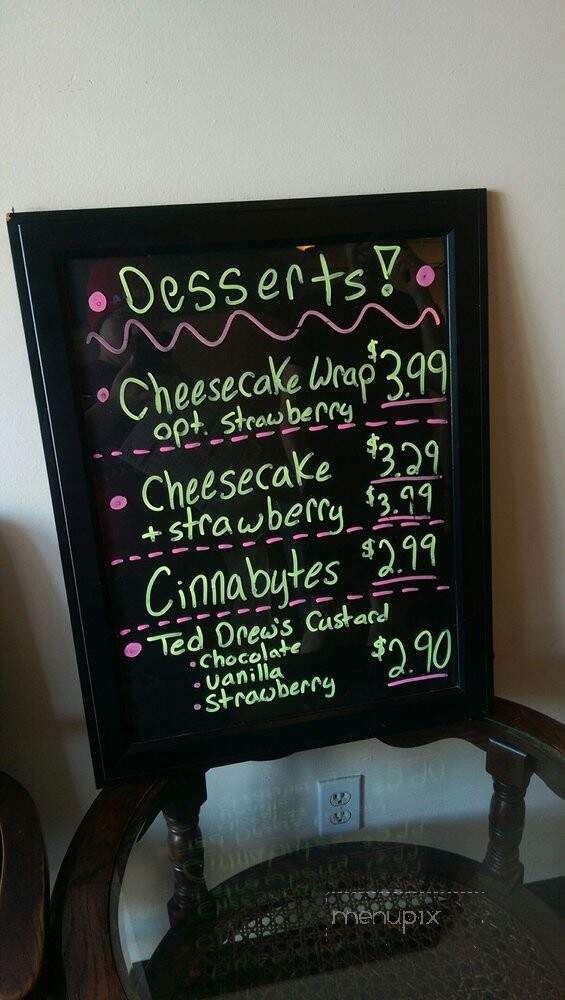 Desserts!
Cheesecake Wrap $3.99
opt. Strawberry
Cheesecake $3.29
+ strawberry $3.99
Cinnabytes $2.99
Ted Drew's Custard
• chocolate $2.90
• vanilla
• strawberry
menupix